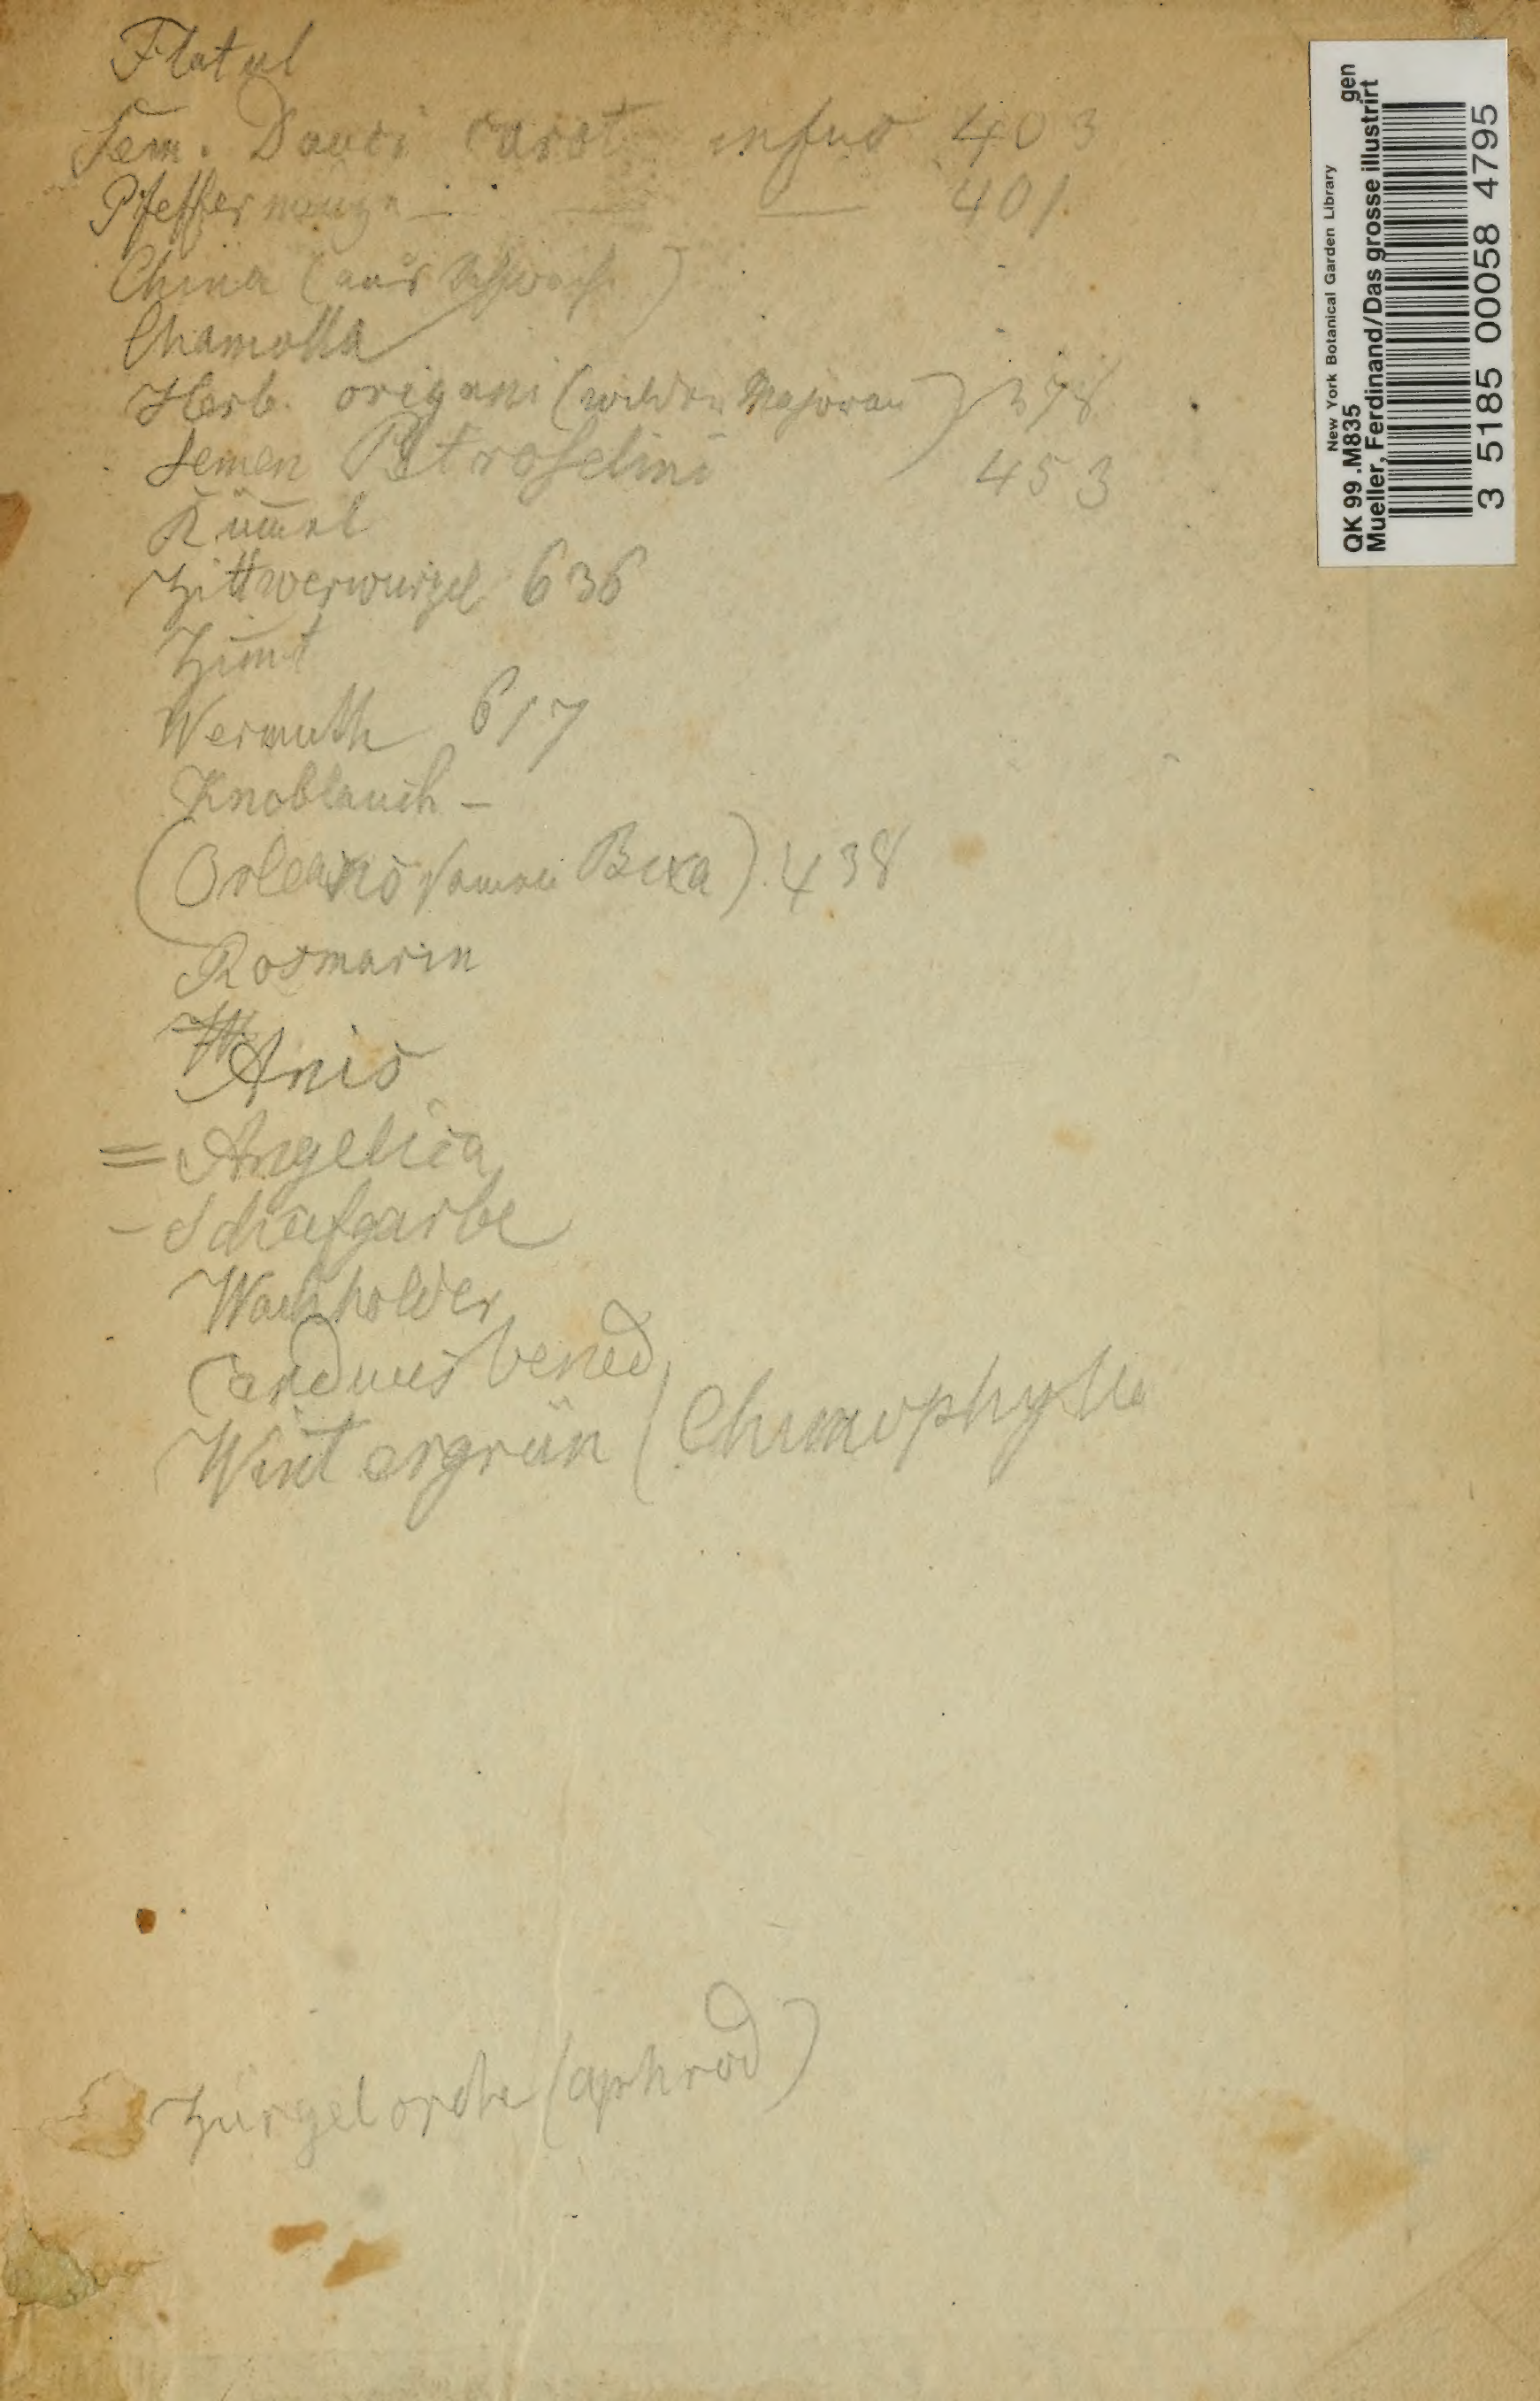 Flatul
Sem. Dauci carot infus 403
Pfeffermünze — — — 401
China (aus Schwäche)
Chamolla
Herb. origani (wilder Majoran) 378
Semen Petroselini 453
Kümel
Zittwerwurzel 636
Zimt
Wermuth 617
Knoblauch –
(Orleans Samen Bixa). 438
Rosmarin
Anis
= Angelica
– Schafgarbe
Wachholder
Carduus bened
Wintergrün (Chimophylla
(aphrod)
New York Botanical Garden Library
QK 99 .M835 gen
Mueller, Ferdinand/Das grosse illustrirt
3 5185 00058 4795